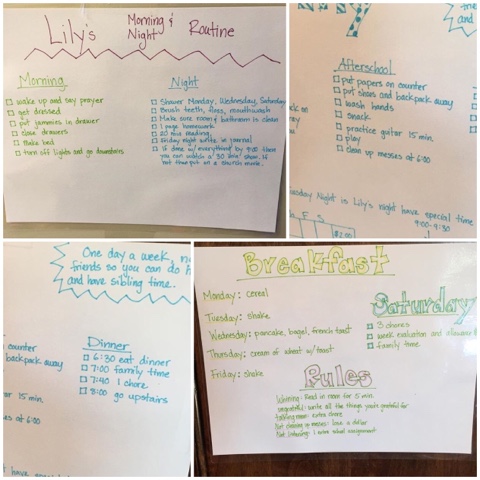 Lily's Morning & Night Routine
Morning
wake up and say prayer
get dressed
put jammies in drawer
close drawers
make bed
turn off lights and go downstairs
Night
Shower Monday, Wednesday, Saturday
Brush teeth, floss, mouthwash
Make sure room & bathroom is clean
1 page homework
20 min reading
Friday night write in journal
If done w/ everything by 9:00 then
you can watch a 30 min show. If
not then put on a church movie.
Afterschool
put papers on counter
put shoes and backpack away
wash hands
snack
practice guitar 15 min.
play
clean up messes at 6:00
Tuesday Night is Lily's night have special time
9:00-9:30
F S
$2.00
One day a week, n
friends so you can do h
and have sibling time.
counter
backpack away
ar 15 min.
es at 6:00
Dinner
6:30 eat dinner
7:00 family time
7:40 1 chore
8:00 go upstairs
t have special
Breakfast
Monday: cereal
Tuesday: shake
Wednesday: pancake, bagel, french toast
Thursday: cream of wheat w/toast
Friday: shake
Saturday
3 chores
week evaluation and allowance
family time
Rules
Whining: Read in room for 5 min.
ungrateful: write all the things you're grateful for
talking mean: extra chore
Not cleaning up messes: lose a dollar
Not listening: 1 extra school assignment